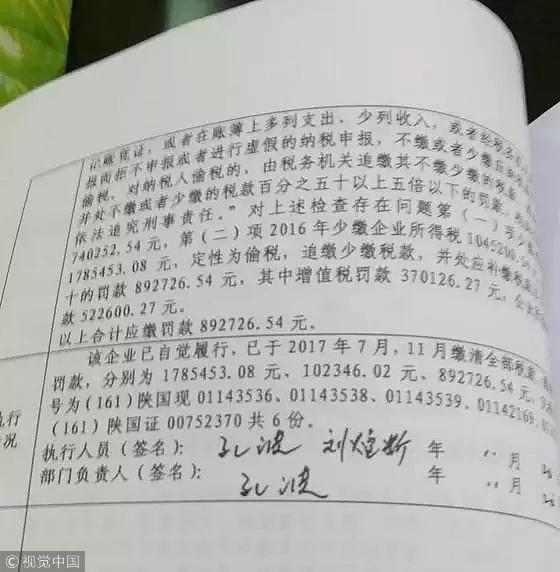 记账凭证，或者在账簿上多列支出、少列收入，或者经税务
报而拒不申报或者进行虚假的纳税申报，不缴或者少缴应
偷税。对纳税人偷税的，由税务机关追缴其不缴少缴的税款
并处不缴或者少缴的税款百分之五十以上五倍以下的罚款
依法追究刑事责任。”对上述检查存在问题第（一）
740252.54元，第（二）项2016年少缴企业所得税1045200.54
1785453.08元，定性为偷税，追缴少缴税款，并处应补缴税款
十的罚款892726.54元，其中增值税罚款370126.27元，企业
款522600.27元。
以上合计应缴罚款892726.54元。
该企业已自觉履行，已于2017年7月，11月缴清全部税款
罚款，分别为1785453.08元、102346.02元、892726.54元，
号为(161)陕国现01143536、01143538、01143539、01142169、
(161)陕国证00752370共6份。
执行
情况
执行人员（签名）： 孔波 年 月
部门负责人（签名）： 孔波 年 月
©视觉中国